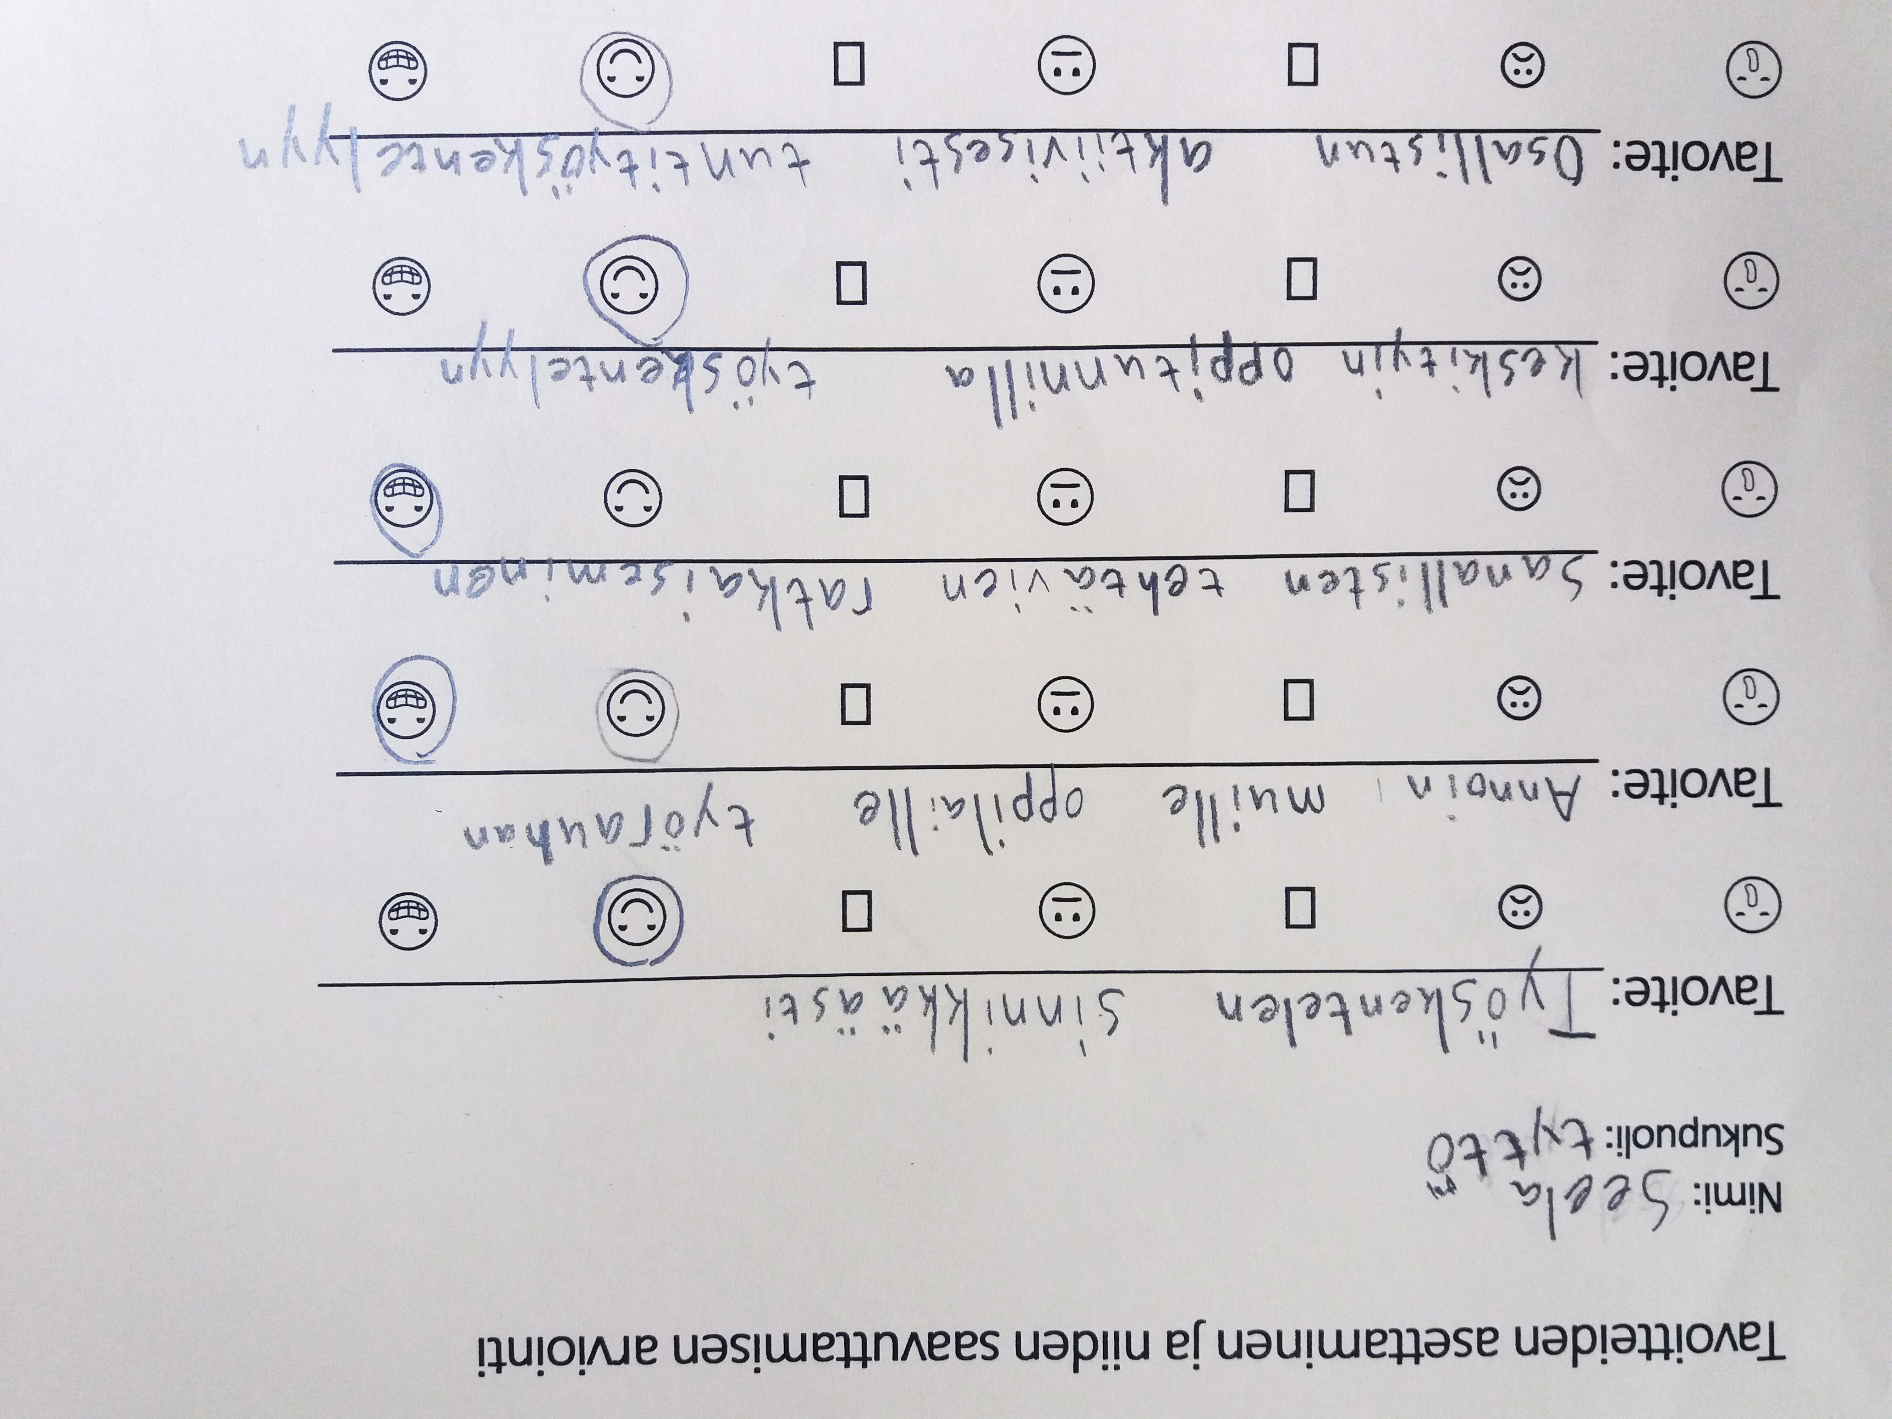 Tavoitteiden asettaminen ja niiden saavuttamisen arviointi
Nimi: Seela
Sukupuoli: tyttö
Tavoite: Työskentelen sinnikkäästi
Tavoite: Annoin muille oppilaille työrauhan
Tavoite: Sanallisten tehtävien ratkaiseminen
Tavoite: keskityin oppitunnilla työskentelyyn
Tavoite: Osallistun aktiivisesti tuntityöskentelyyn